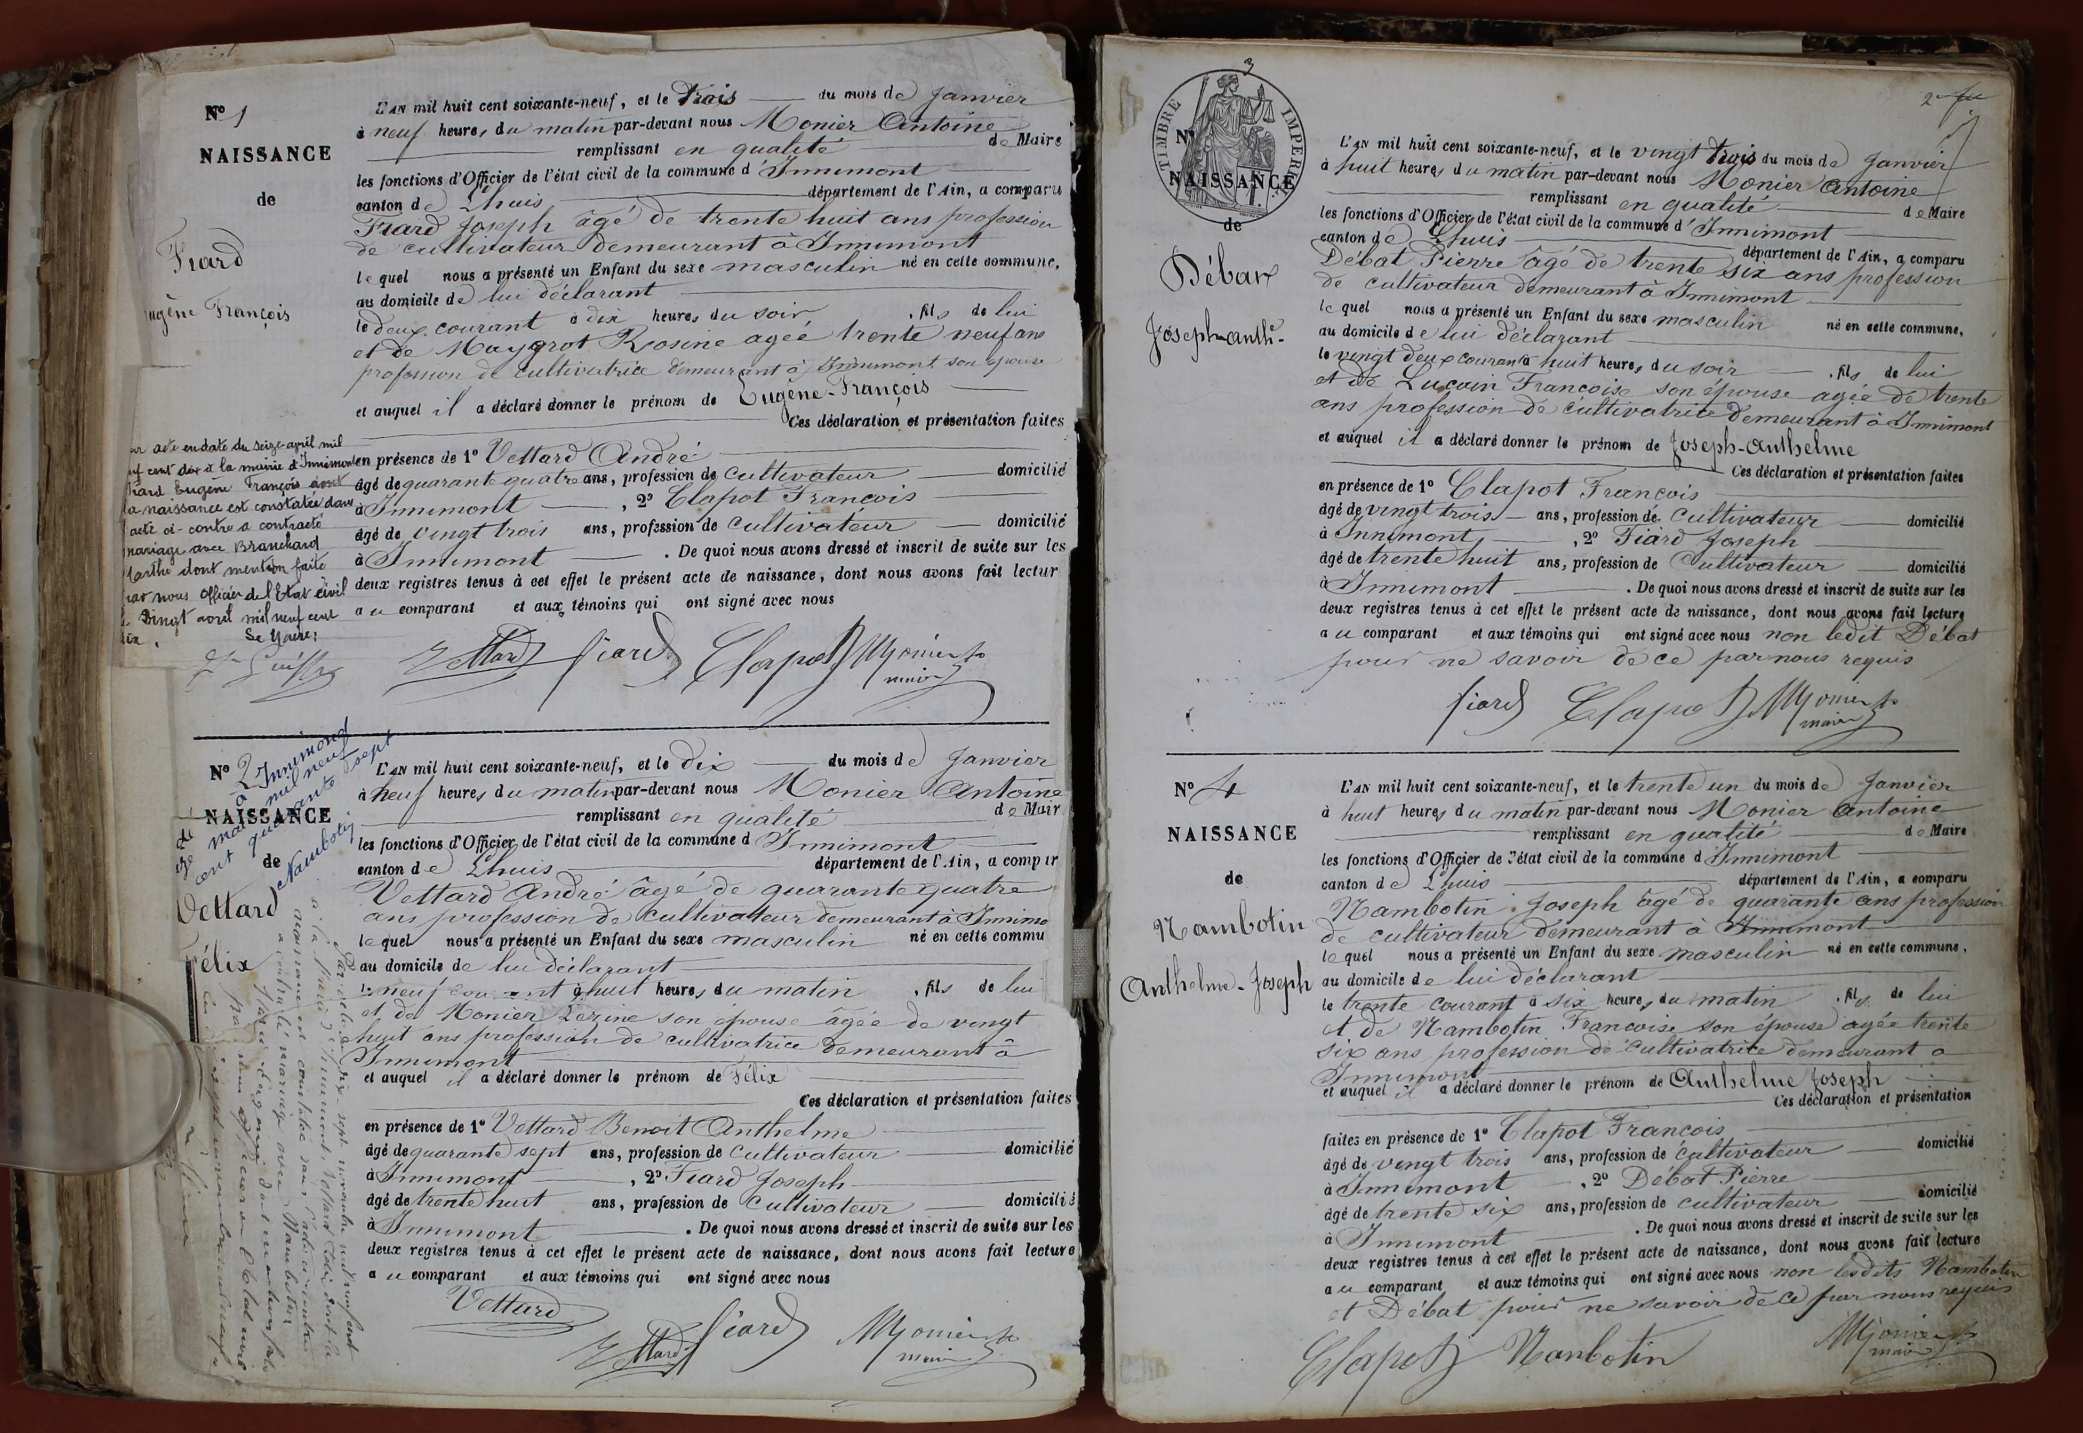 Nº 1
NAISSANCE
de
Fiard
Eugène François
L'AN mil huit cent soixante-neuf, et le trois du mois de Janvier
à neuf heures du matin par-devant nous Monier Antoine
remplissant en qualité de Maire
les fonctions d'Officier de l'état civil de la commune d'Innimont
canton de Lhuis département de l'Ain, a comparu
Fiard Joseph âgé de trente huit ans profession
de cultivateur demeurant à Innimont
lequel nous a présenté un Enfant du sexe masculin né en cette commune,
au domicile de lui déclarant
le deux courant à dix heures du soir, fils de lui
et de Maygrot Rosine agée trente neuf ans
profession de cultivatrice demeurant à Innimont son épouse
et auquel il a déclaré donner le prénom de Eugène-François
Ces déclaration et présentation faites
en présence de 1º Vettard André
âgé de quarante quatre ans, profession de cultivateur domicilié
à Innimont, 2º Clapot François
âgé de vingt trois ans, profession de cultivateur domicilié
à Innimont. De quoi nous avons dressé et inscrit de suite sur les
deux registres tenus à cet effet le présent acte de naissance, dont nous avons fait lectur
au comparant et aux témoins qui ont signé avec nous
acte en date du seize avril mil
cent dix à la mairie d'Innimont
Fiard Eugène François dont
la naissance est constatée dans
l'acte ci-contre a contracté
mariage avec Branchard
Marthe dont mention faite
par nous officier de l'Etat civil
vingt avril mil neuf cent
dix.
Le Maire,
Vettard Fiard Clapot Monier
maire
Nº 2
NAISSANCE
de
Vettard
Félix
à Innimond
mai mil neuf
cent quarante sept
Nambotin
L'AN mil huit cent soixante-neuf, et le dix du mois de Janvier
à neuf heures du matin par-devant nous Monier Antoine
remplissant en qualité de Mair
les fonctions d'Officier de l'état civil de la commune d Innimont
canton de Lhuis département de l'Ain, a compar
Vettard André âgé de quarante quatre
ans profession de cultivateur demeurant à Innimo
lequel nous a présenté un Enfant du sexe masculin né en cette commu
au domicile de lui déclarant
le neuf courant à huit heures du matin, fils de lui
et de Monier Lézine son épouse âgée de vingt
huit ans profession de cultivatrice demeurant à
Innimont
et auquel il a déclaré donner le prénom de Félix
Ces déclaration et présentation faites
en présence de 1º Vettard Benoit Anthelme
âgé de quarante sept ans, profession de cultivateur domicilié
à Innimont, 2º Fiard Joseph
âgé de trente huit ans, profession de cultivateur domicilié
à Innimont. De quoi nous avons dressé et inscrit de suite sur les
deux registres tenus à cet effet le présent acte de naissance, dont nous avons fait lecture
au comparant et aux témoins qui ont signé avec nous
Vettard
Vettard Fiard Monier
maire
3
TIMBRE IMPERIAL
Nº
NAISSANCE
de
Débat
Joseph-anth.
L'AN mil huit cent soixante-neuf, et le vingt trois du mois de Janvier
à huit heures du matin par-devant nous Monier Antoine
remplissant en qualité de Maire
les fonctions d'Officier de l'état civil de la commune d'Innimont
canton de Lhuis département de l'Ain, a comparu
Débat Pierre âgé de trente six ans profession
de cultivateur demeurant à Innimont
lequel nous a présenté un Enfant du sexe masculin né en cette commune,
au domicile de lui déclarant
le vingt deux courant à huit heures du soir, fils de lui
et de Lucain Francoise son épouse agée de trente
ans profession de cultivatrice demeurant à Innimont
et auquel il a déclaré donner le prénom de Joseph-Anthelme
Ces déclaration et présentation faites
en présence de 1º Clapot François
âgé de vingt trois ans, profession de cultivateur domicilié
à Innimont, 2º Fiard Joseph
âgé de trente huit ans, profession de cultivateur domicilié
à Innimont. De quoi nous avons dressé et inscrit de suite sur les
deux registres tenus à cet effet le présent acte de naissance, dont nous avons fait lecture
au comparant et aux témoins qui ont signé avec nous non ledit Débat
pour ne savoir de ce par nous requis
Fiard Clapot Monier
maire
Nº 4
NAISSANCE
de
Nambotin
Anthelme-Joseph
L'AN mil huit cent soixante-neuf, et le trente un du mois de Janvier
à huit heures du matin par-devant nous Monier Antoine
remplissant en qualité de Maire
les fonctions d'Officier de l'état civil de la commune d Innimont
canton de Lhuis département de l'Ain, a comparu
Nambotin Joseph âgé de quarante ans profession
de cultivateur demeurant à Innimont
lequel nous a présenté un Enfant du sexe masculin né en cette commune,
au domicile de lui déclarant
le trente courant à six heures du matin, fils de lui
et de Nambotin Francoise son épouse agée trente
six ans profession de cultivatrice demeurant a
Innimont
et auquel il a déclaré donner le prénom de Anthelme Joseph
Ces déclaration et présentation
faites en présence de 1º Clapot François
âgé de vingt trois ans, profession de cultivateur domicilié
à Innimont, 2º Débat Pierre
âgé de trente six ans, profession de cultivateur domicilié
à Innimont. De quoi nous avons dressé et inscrit de suite sur les
deux registres tenus à cet effet le présent acte de naissance, dont nous avons fait lecture
au comparant et aux témoins qui ont signé avec nous non lesdits Nambotin
et Débat pour ne savoir de ce par nous requis
Clapot Nambotin Monier
maire